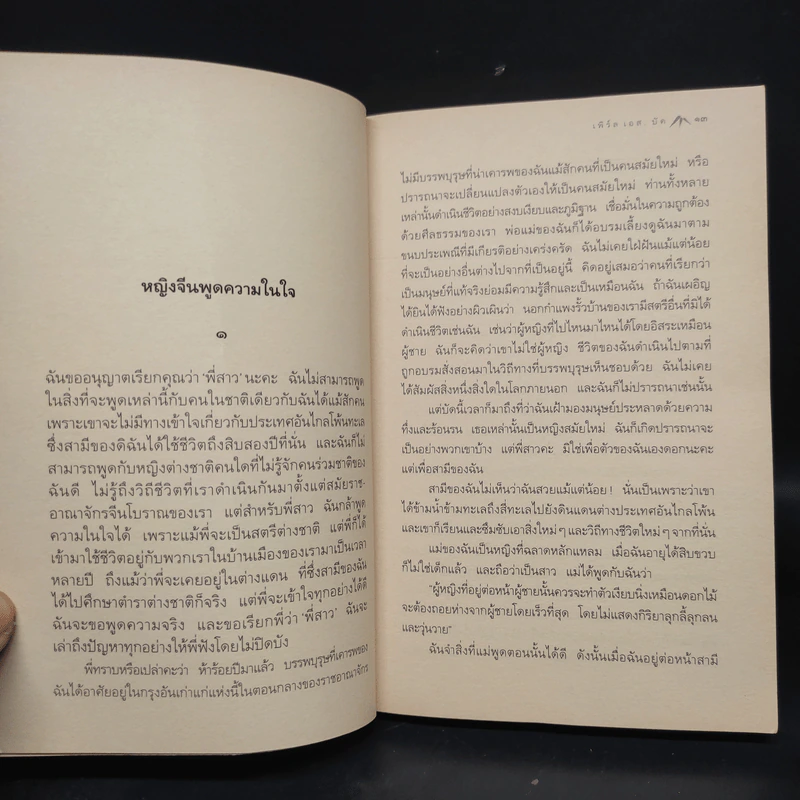 หญิงจีนพูดความในใจ
๑
ฉันขออนุญาตเรียกคุณว่า 'พี่สาว' นะคะ ฉันไม่สามารถพูด
ในสิ่งที่จะพูดเหล่านี้กับคนในชาติเดียวกับฉันได้แม้สักคน
เพราะเขาจะไม่มีทางเข้าใจเกี่ยวกับประเทศอันไกลโพ้นทะเล
ซึ่งสามีของดิฉันได้ใช้ชีวิตถึงสิบสองปีที่นั่น และฉันก็ไม่
สามารถพูดกับหญิงต่างชาติคนใดที่ไม่รู้จักคนร่วมชาติของ
ฉันดี ไม่รู้ถึงวิถีชีวิตที่เราดำเนินกันมาตั้งแต่สมัยราช-
อาณาจักรจีนโบราณของเรา แต่สำหรับพี่สาว ฉันกล้าพูด
ความในใจได้ เพราะแม้พี่จะเป็นสตรีต่างชาติ แต่พี่ก็ได้
เข้ามาใช้ชีวิตอยู่กับพวกเราในบ้านเมืองของเรามาเป็นเวลา
หลายปี ถึงแม้ว่าพี่จะเคยอยู่ในต่างแดน ที่ซึ่งสามีของฉัน
ได้ไปศึกษาตำราต่างชาติก็จริง แต่พี่จะเข้าใจทุกอย่างได้ดี
ฉันจะขอพูดความจริง และขอเรียกพี่ว่า 'พี่สาว' ฉันจะ
เล่าถึงปัญหาทุกอย่างให้พี่ฟังโดยไม่ปิดบัง
พี่ทราบหรือเปล่าคะว่า ห้าร้อยปีมาแล้ว บรรพบุรุษที่เคารพของ
ฉันได้อาศัยอยู่ในกรุงอันเก่าแก่แห่งนี้ในตอนกลางของราชอาณาจักร
เพิร์ล เอส. บัค ๑๓
ไม่มีบรรพบุรุษที่น่าเคารพของฉันแม้สักคนที่เป็นคนสมัยใหม่ หรือ
ปรารถนาจะเปลี่ยนแปลงตัวเองให้เป็นคนสมัยใหม่ ท่านทั้งหลาย
เหล่านั้นดำเนินชีวิตอย่างสงบเงียบและภูมิฐาน เชื่อมั่นในความถูกต้อง
ด้วยศีลธรรมของเรา พ่อแม่ของฉันก็ได้อบรมเลี้ยงดูฉันมาตาม
ขนบประเพณีที่มีเกียรติอย่างเคร่งครัด ฉันไม่เคยใฝ่ฝันแม้แต่น้อย
ที่จะเป็นอย่างอื่นต่างไปจากที่เป็นอยู่นี้ คิดอยู่เสมอว่าคนที่เรียกว่า
เป็นมนุษย์ที่แท้จริงย่อมมีความรู้สึกและเป็นเหมือนฉัน ถ้าฉันเผอิญ
ได้ยินได้ฟังอย่างผิวเผินว่า นอกกำแพงรั้วบ้านของเรามีสตรีอื่นที่มิได้
ดำเนินชีวิตเช่นฉัน เช่นว่าผู้หญิงที่ไปไหนมาไหนได้โดยอิสระเหมือน
ผู้ชาย ฉันก็จะคิดว่าเขาไม่ใช่ผู้หญิง ชีวิตของฉันดำเนินไปตามที่
ถูกอบรมสั่งสอนมาในวิถีทางที่บรรพบุรุษเห็นชอบด้วย ฉันไม่เคย
ได้สัมผัสสิ่งหนึ่งสิ่งใดในโลกภายนอก และฉันก็ไม่ปรารถนาเช่นนั้น
แต่บัดนี้เวลาก็มาถึงที่ว่าฉันเฝ้ามองมนุษย์ประหลาดด้วยความ
ทึ่งและร้อนรน เธอเหล่านั้นเป็นหญิงสมัยใหม่ ฉันก็เกิดปรารถนาจะ
เป็นอย่างพวกเขาบ้าง แต่พี่สาวคะ มิใช่เพื่อตัวของฉันเองดอกนะคะ
แต่เพื่อสามีของฉัน
สามีของฉันไม่เห็นว่าฉันสวยแม้แต่น้อย! นั่นเป็นเพราะว่าเขา
ได้ข้ามน้ำข้ามทะเลถึงสี่ทะเลไปยังดินแดนต่างประเทศอันไกลโพ้น
และเขาก็เรียนและซึมซับเอาสิ่งใหม่ๆ และวิถีทางชีวิตใหม่ๆ จากที่นั่น
แม่ของฉันเป็นหญิงที่ฉลาดหลักแหลม เมื่อฉันอายุได้สิบขวบ
ก็ไม่ใช่เด็กแล้ว และถือว่าเป็นสาว แม่ได้พูดกับฉันว่า
"ผู้หญิงที่อยู่ต่อหน้าผู้ชายนั้นควรจะทำตัวเงียบนิ่งเหมือนดอกไม้
จะต้องถอยห่างจากผู้ชายโดยเร็วที่สุด โดยไม่แสดงกิริยาลุกลี้ลุกลน
และวุ่นวาย"
ฉันจำสิ่งที่แม่พูดตอนนั้นได้ดี ดังนั้นเมื่อฉันอยู่ต่อหน้าสามี